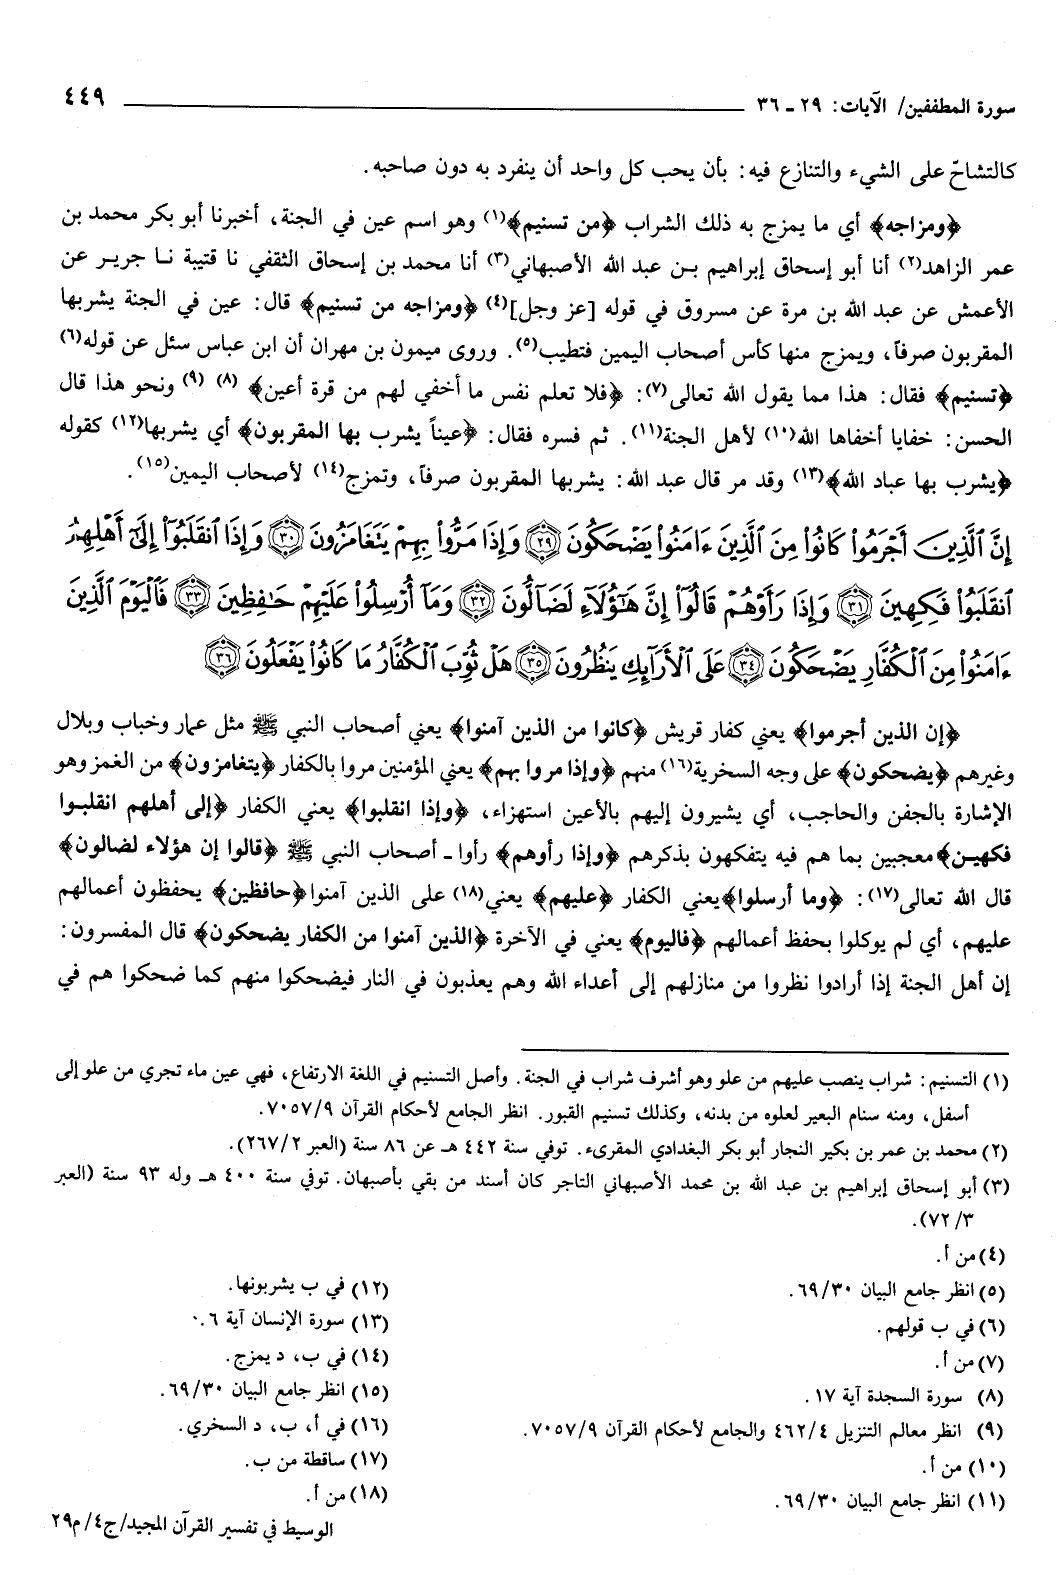 سورة المطففين/ الآيات: ٢٩ ـ ٣٦ ٤٤٩
كالتشاحّ على الشيء والتنازع فيه: بأن يحب كل واحد أن ينفرد به دون صاحبه.
﴿ومزاجه﴾ أي ما يمزج به ذلك الشراب ﴿من تسنيم﴾(١) وهو اسم عين في الجنة، أخبرنا أبو بكر محمد بن
عمر الزاهد(٢) أنا أبو إسحاق إبراهيم بن عبد الله الأصبهاني(٣) أنا محمد بن إسحاق الثقفي نا قتيبة نا جرير عن
الأعمش عن عبد الله بن مرة عن مسروق في قوله [عز وجل](٤) ﴿ومزاجه من تسنيم﴾ قال: عين في الجنة يشربها
المقربون صرفاً، ويمزج منها كأس أصحاب اليمين فتطيب(٥). وروى ميمون بن مهران أن ابن عباس سئل عن قوله(٦)
﴿تسنيم﴾ فقال: هذا مما يقول الله تعالى(٧): ﴿فلا تعلم نفس ما أخفي لهم من قرة أعين﴾ (٨) (٩) ونحو هذا قال
الحسن: خفايا أخفاها الله(١٠) لأهل الجنة(١١). ثم فسره فقال: ﴿عيناً يشرب بها المقربون﴾ أي يشربها(١٢) كقوله
﴿يشرب بها عباد الله﴾(١٣) وقد مر قال عبد الله: يشربها المقربون صرفاً، وتمزج(١٤) لأصحاب اليمين(١٥).
إِنَّ ٱلَّذِينَ أَجْرَمُوا۟ كَانُوا۟ مِنَ ٱلَّذِينَ ءَامَنُوا۟ يَضْحَكُونَ ﴿٢٩﴾ وَإِذَا مَرُّوا۟ بِهِمْ يَتَغَامَزُونَ ﴿٣٠﴾ وَإِذَا ٱنقَلَبُوٓا۟ إِلَىٰٓ أَهْلِهِمُ
ٱنقَلَبُوا۟ فَكِهِينَ ﴿٣١﴾ وَإِذَا رَأَوْهُمْ قَالُوٓا۟ إِنَّ هَٰٓؤُلَآءِ لَضَآلُّونَ ﴿٣٢﴾ وَمَآ أُرْسِلُوا۟ عَلَيْهِمْ حَٰفِظِينَ ﴿٣٣﴾ فَٱلْيَوْمَ ٱلَّذِينَ
ءَامَنُوا۟ مِنَ ٱلْكُفَّارِ يَضْحَكُونَ ﴿٣٤﴾ عَلَى ٱلْأَرَآئِكِ يَنظُرُونَ ﴿٣٥﴾ هَلْ ثُوِّبَ ٱلْكُفَّارُ مَا كَانُوا۟ يَفْعَلُونَ ﴿٣٦﴾
﴿إن الذين أجرموا﴾ يعني كفار قريش ﴿كانوا من الذين آمنوا﴾ يعني أصحاب النبي ﷺ مثل عمار وخباب وبلال
وغيرهم ﴿يضحكون﴾ على وجه السخرية(١٦) منهم ﴿وإذا مروا بهم﴾ يعني المؤمنين مروا بالكفار ﴿يتغامزون﴾ من الغمز وهو
الإشارة بالجفن والحاجب، أي يشيرون إليهم بالأعين استهزاء، ﴿وإذا انقلبوا﴾ يعني الكفار ﴿إلى أهلهم انقلبوا
فكهين﴾ معجبين بما هم فيه يتفكهون بذكرهم ﴿وإذا رأوهم﴾ رأوا ـ أصحاب النبي ﷺ ﴿قالوا إن هؤلاء لضالون﴾
قال الله تعالى(١٧): ﴿وما أرسلوا﴾ يعني الكفار ﴿عليهم﴾ يعني(١٨) على الذين آمنوا ﴿حافظين﴾ يحفظون أعمالهم
عليهم، أي لم يوكلوا بحفظ أعمالهم ﴿فاليوم﴾ يعني في الآخرة ﴿الذين آمنوا من الكفار يضحكون﴾ قال المفسرون:
إن أهل الجنة إذا أرادوا نظروا من منازلهم إلى أعداء الله وهم يعذبون في النار فيضحكوا منهم كما ضحكوا هم في
(١) التسنيم: شراب ينصب عليهم من علو وهو أشرف شراب في الجنة. وأصل التسنيم في اللغة الارتفاع، فهي عين ماء تجري من علو إلى
أسفل، ومنه سنام البعير لعلوه من بدنه، وكذلك تسنيم القبور. انظر الجامع لأحكام القرآن ٧٠٥٧/٩.
(٢) محمد بن عمر بن بكير النجار أبو بكر البغدادي المقرىء. توفي سنة ٤٤٢ هـ عن ٨٦ سنة (العبر ٢٦٧/٢).
(٣) أبو إسحاق إبراهيم بن عبد الله بن محمد الأصبهاني التاجر كان أسند من بقي بأصبهان. توفي سنة ٤٠٠ هـ وله ٩٣ سنة (العبر
٧٢/٣).
(٤) من أ.
(٥) انظر جامع البيان ٦٩/٣٠.
(٦) في ب قولهم.
(٧) من أ.
(٨) سورة السجدة آية ١٧.
(٩) انظر معالم التنزيل ٤٦٢/٤ والجامع لأحكام القرآن ٧٠٥٧/٩.
(١٠) من أ.
(١١) انظر جامع البيان ٦٩/٣٠.
(١٢) في ب يشربونها.
(١٣) سورة الإنسان آية ٦.
(١٤) في ب، د يمزج.
(١٥) انظر جامع البيان ٦٩/٣٠.
(١٦) في أ، ب، د السخري.
(١٧) ساقطة من ب.
(١٨) من أ.
الوسيط في تفسير القرآن المجيد/ج٤/م٢٩